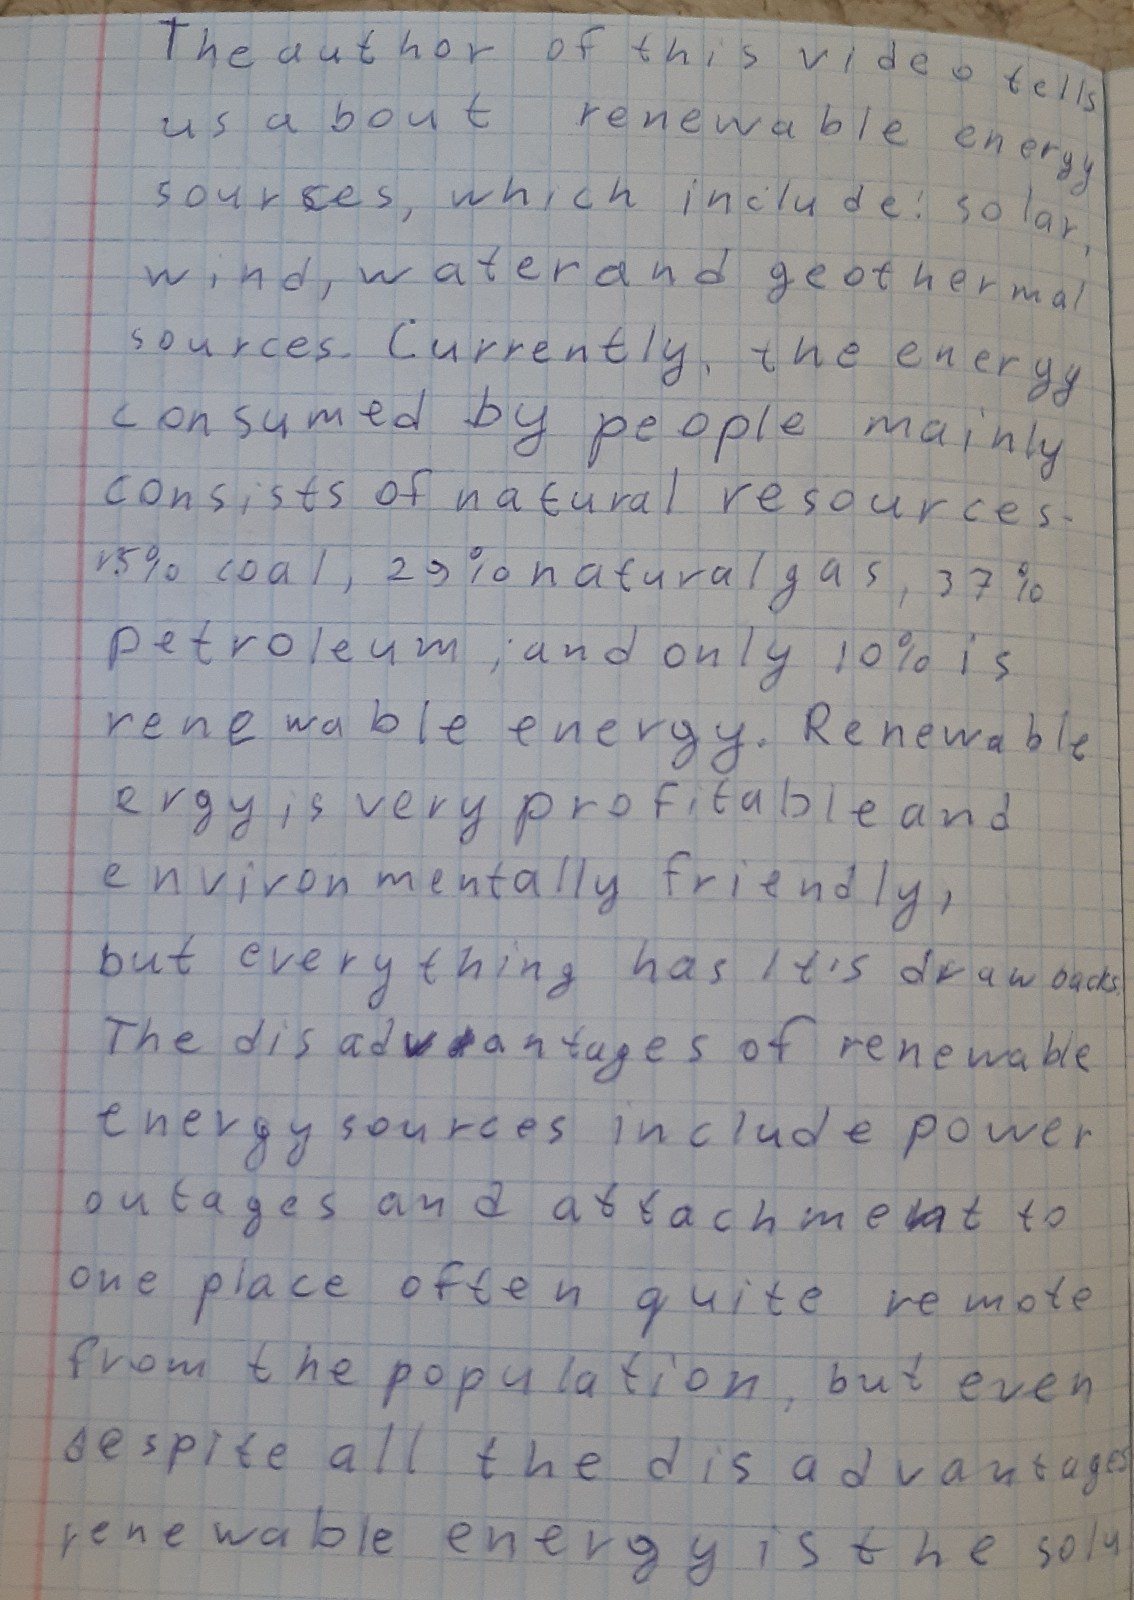 The author of this video tells
us about renewable energy
sources, which include: solar,
wind, water and geothermal
sources. Currently, the energy
consumed by people mainly
consists of natural resources-
15% coal, 29% natural gas, 37%
petroleum, and only 10% is
renewable energy. Renewable
ergy is very profitable and
environmentally friendly,
but everything has it's drawbacks.
The disadvantages of renewable
energy sources include power
outages and attachment to
one place often quite remote
from the population, but even
despite all the disadvantages
renewable energy is the solu